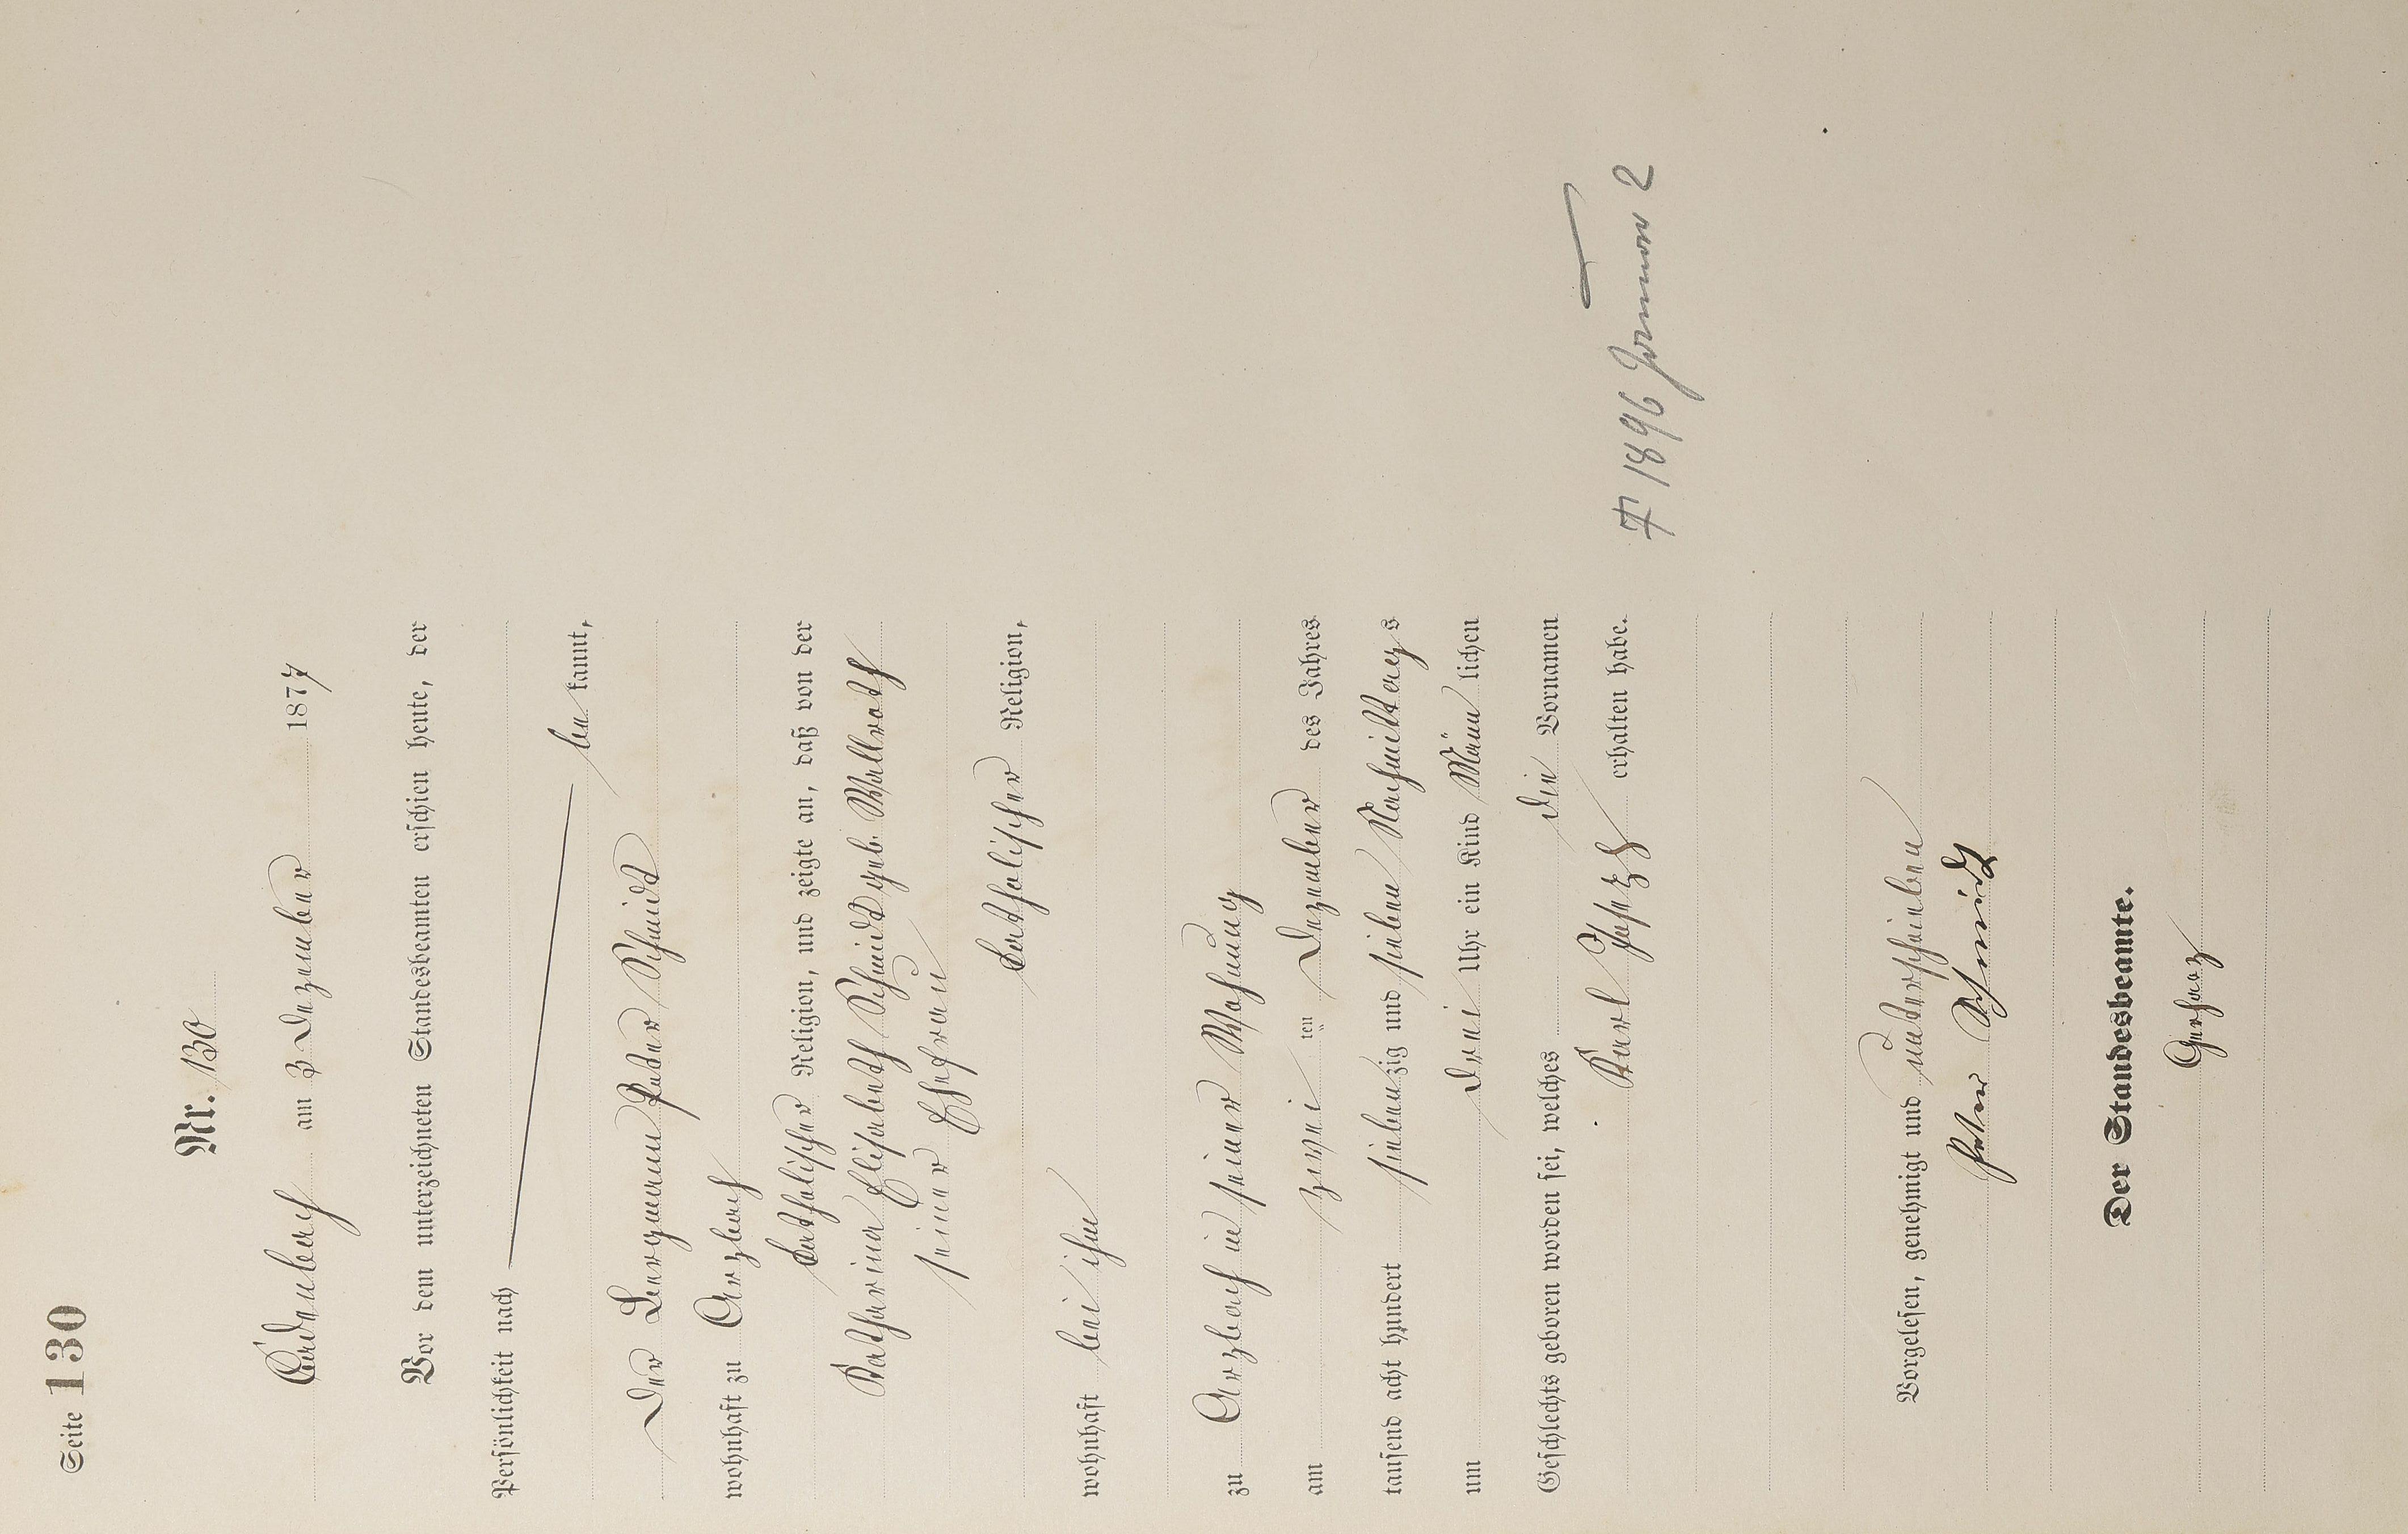 Seite 130
Nr. 130
Cadenbach am 3 Dezember 1877
Vor dem unterzeichneten Standesbeamten erschien heute, der
Persönlichkeit nach
be kannt,
der Bergmann Peter Schmidt
wohnhaft zu Arzbach
katholischer Religion, und zeigte an, daß von der
Katharina Elisabeth Schmidt geb. Wallroth
seiner Ehefrau
katholischer Religion,
wohnhaft bei ihm
zu Arzbach in seiner Wohnung
am zwei ten Dezember des Jahres
tausend acht hundert sieben zig und sieben Nachmittags
um drei Uhr ein Kind männ lichen
Geschlechts geboren worden sei, welches die Vornamen
Karl Joseph erhalten habe.
1896 2
Vorgelesen, genehmigt und unterschrieben
Peter Schmidt
Der Standesbeamte.
Gerharz